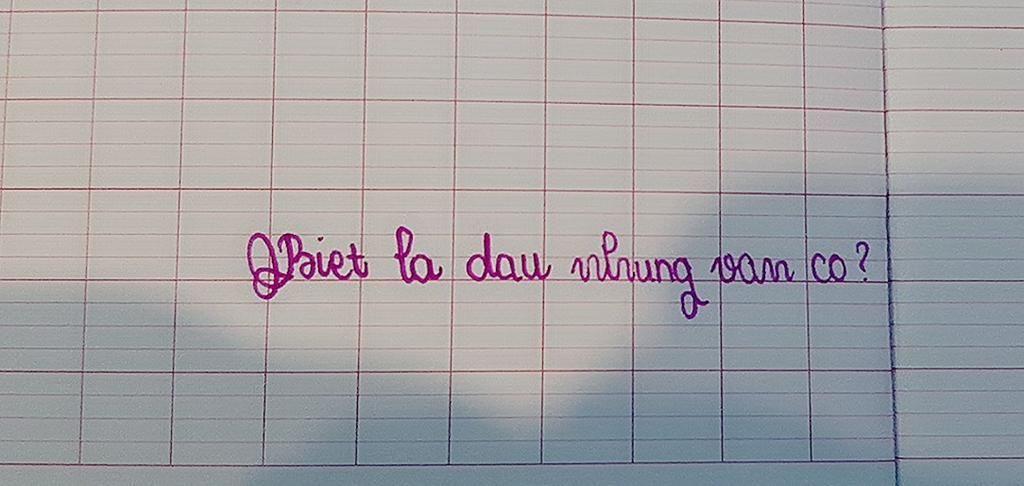 Biet la dau nhung van co?